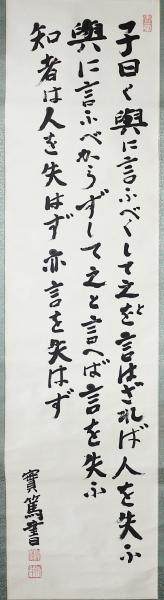 子曰く與に言ふべくして之と言はざれば人を失ふ
與に言ふべからずして之と言へば言を失ふ
知者は人を失はず亦言を失はず
實篤書